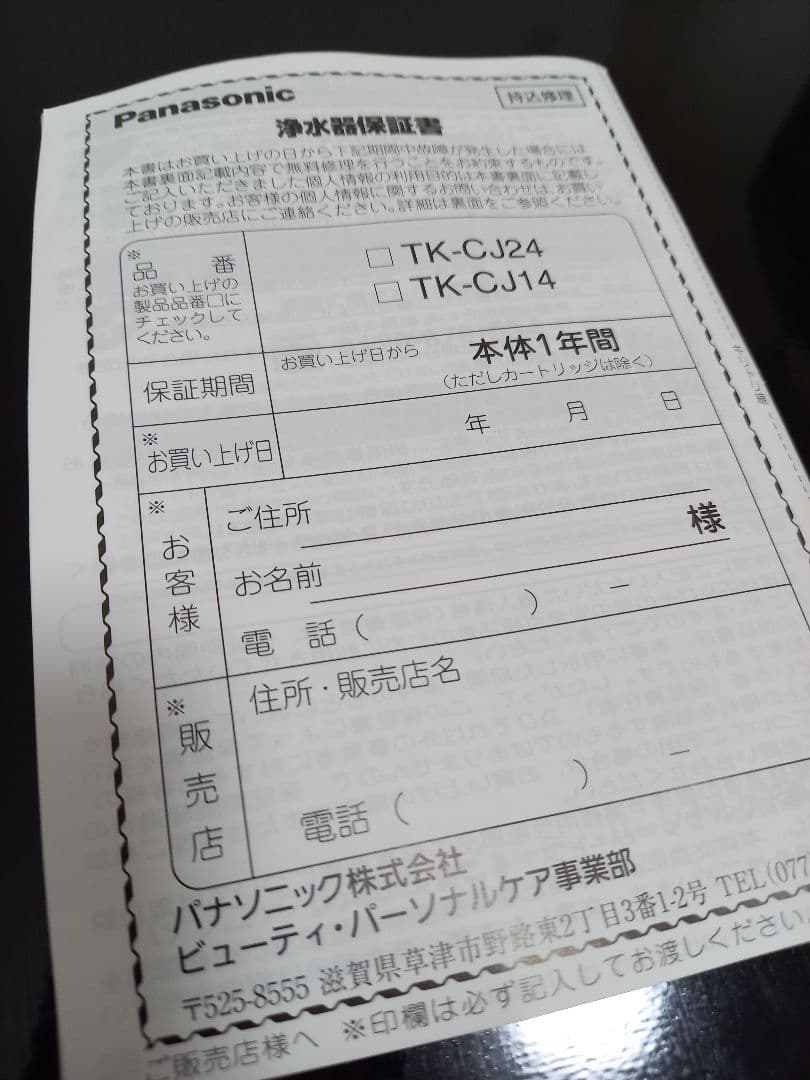 Panasonic
持込修理
浄水器保証書
本書はお買い上げの日から下記期間中故障が発生した場合には
本書裏面記載内容で無料修理を行うことをお約束するものです。
ご記入いただきました個人情報の利用目的は本書裏面に記載し
ております。お客様の個人情報に関するお問い合わせは、お買い
上げの販売店にご連絡ください。詳細は裏面をご参照ください。
※
品番
お買い上げの
製品品番□に
チェックして
ください。
□ TK-CJ24
□ TK-CJ14
保証期間
お買い上げ日から 本体1年間
(ただしカートリッジは除く)
※
お買い上げ日
年 月 日
※
お客様
ご住所
お名前
様
電話( ) −
※
販売店
住所・販売店名
電話( ) −
パナソニック株式会社
ビューティ・パーソナルケア事業部
〒525-8555 滋賀県草津市野路東2丁目3番1-2号 TEL(077
ご販売店様へ ※印欄は必ず記入してお渡しください